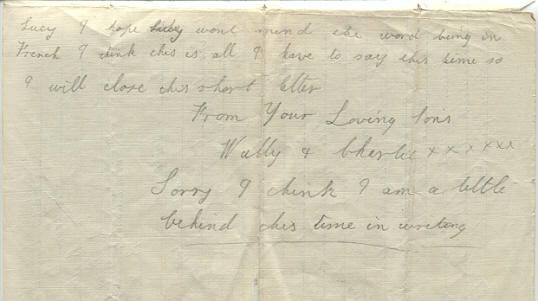 Lucy I hope Lucy wont mind the word being in
French I think this is all I have to say this time so
I will close this short letter
From Your Loving Sons
Wally & Charlie x x x x x x
Sorry I think I am a little
behind this time in writing